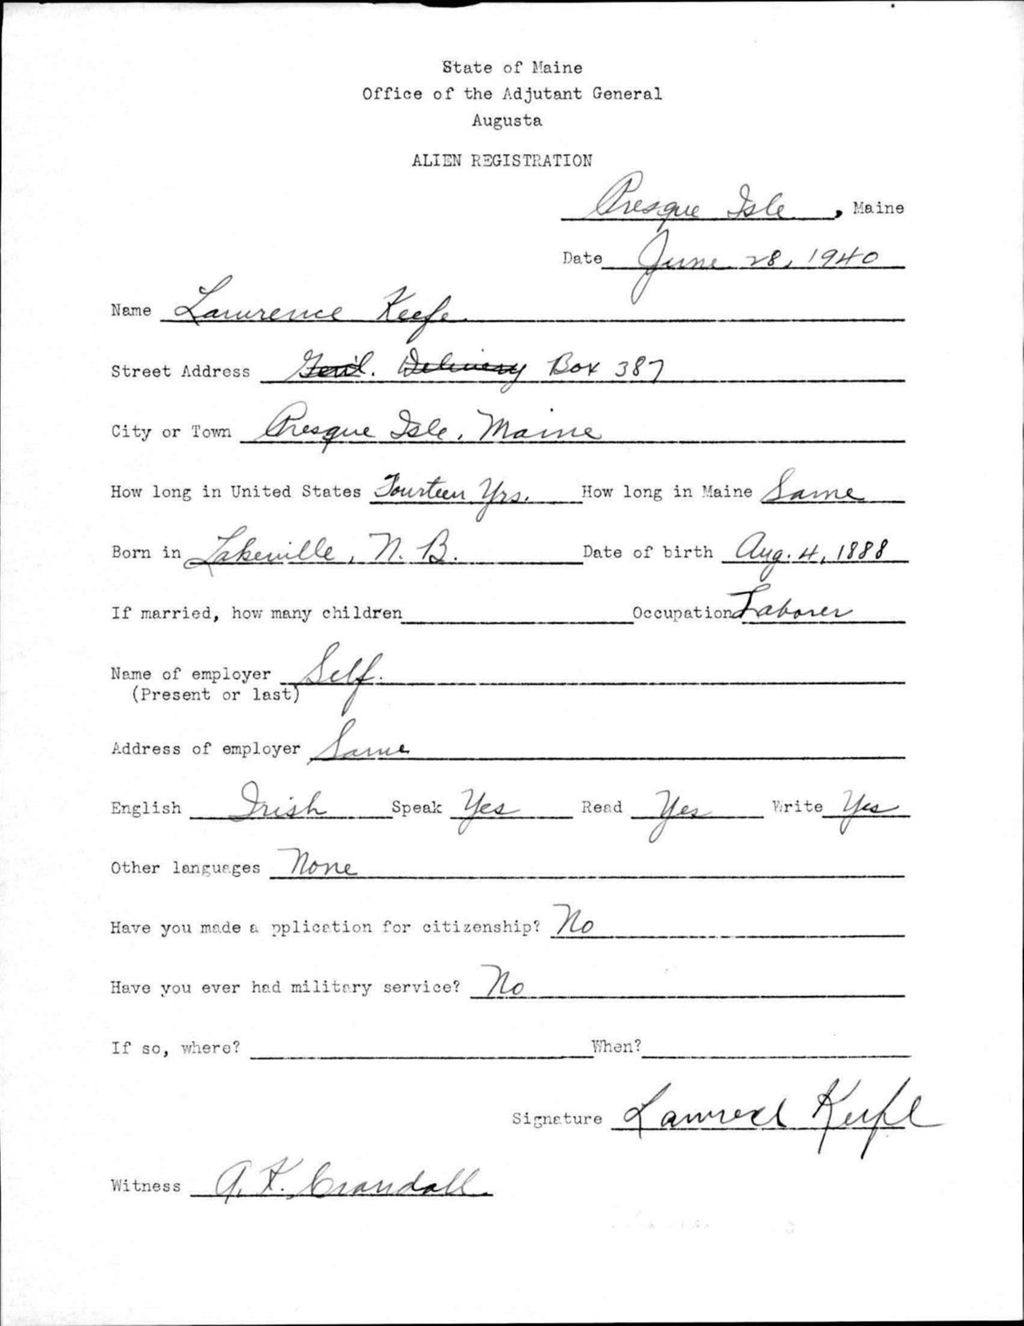 State of Maine
Office of the Adjutant General
Augusta
ALIEN REGISTRATION
Presque Isle, Maine
Date June 28, 1940
Name Lawrence Keefe
Street Address Gen'l. Delivery Box 387
City or Town Presque Isle, Maine
How long in United States Fourteen Yrs. How long in Maine Same
Born in Lakeville, N. B. Date of birth Aug. 4, 1888
If married, how many children Occupation Laborer
Name of employer Self.
(Present or last)
Address of employer Same
English Irish Speak Yes Read Yes Write Yes
Other languages None
Have you made a pplication for citizenship? No
Have you ever had military service? No
If so, where? When?
Signature Lawrence Keefe
Witness A. K. Crandall.